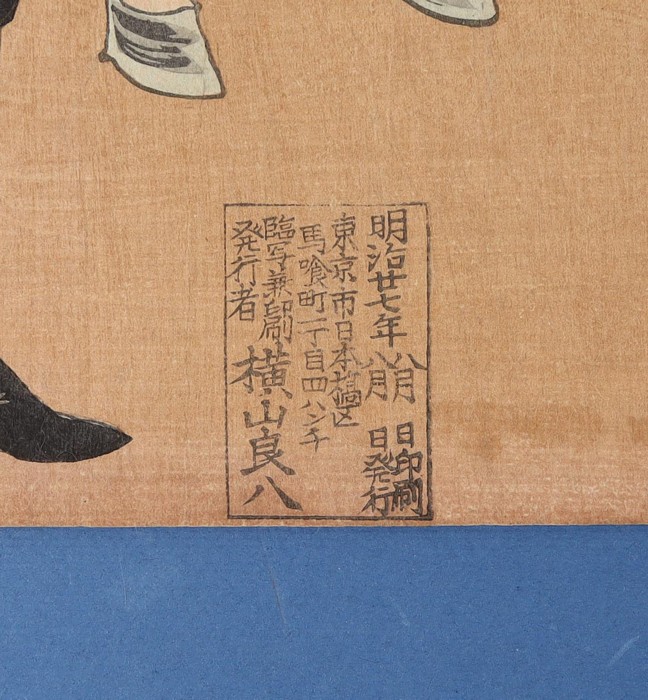 明治廿七年八月 日印刷
月 日発行
東京市日本橋区
馬喰町一丁目四ハンチ
臨写兼印刷
発行者 横山良八